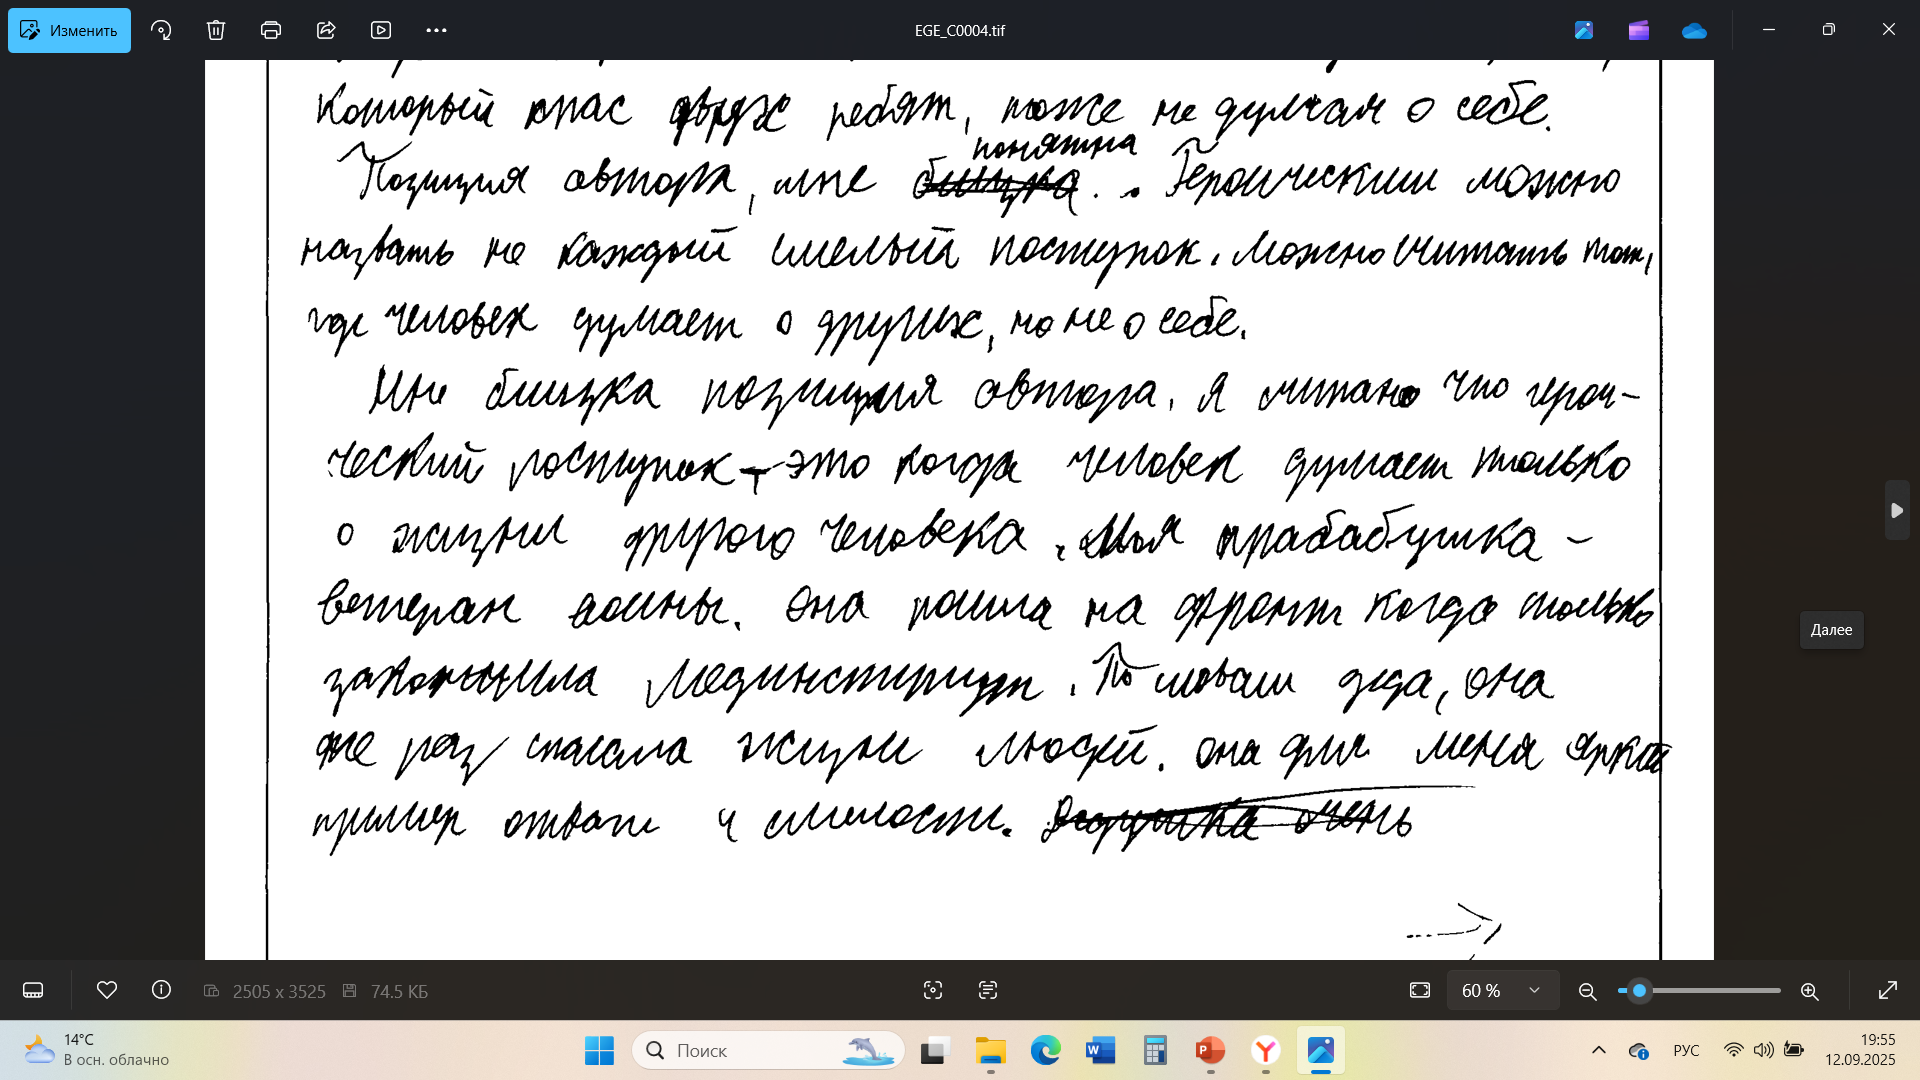 Изменить
EGE_C0004.tif
который спас двух ребят, тоже не думая о себе.
понятна
Позиция автора, мне близка. Героическим можно
назвать не каждый смелый поступок. Можно считать том,
где человек думает о других, но не о себе.
Мне близка позиция автора. Я считаю что герои-
ческий поступок - это когда человек думает только
о жизни другого человека. Моя прабабушка -
ветеран войны. Она пошла на фронт когда только
закончила мединститут. По словам деда, она
не раз спасала жизни людей. она для меня яркий
пример отваги и смелости. очень
Далее
2505 x 3525 74.5 КБ
60 %
14°C
В осн. облачно
Поиск
РУС
19:55
12.09.2025